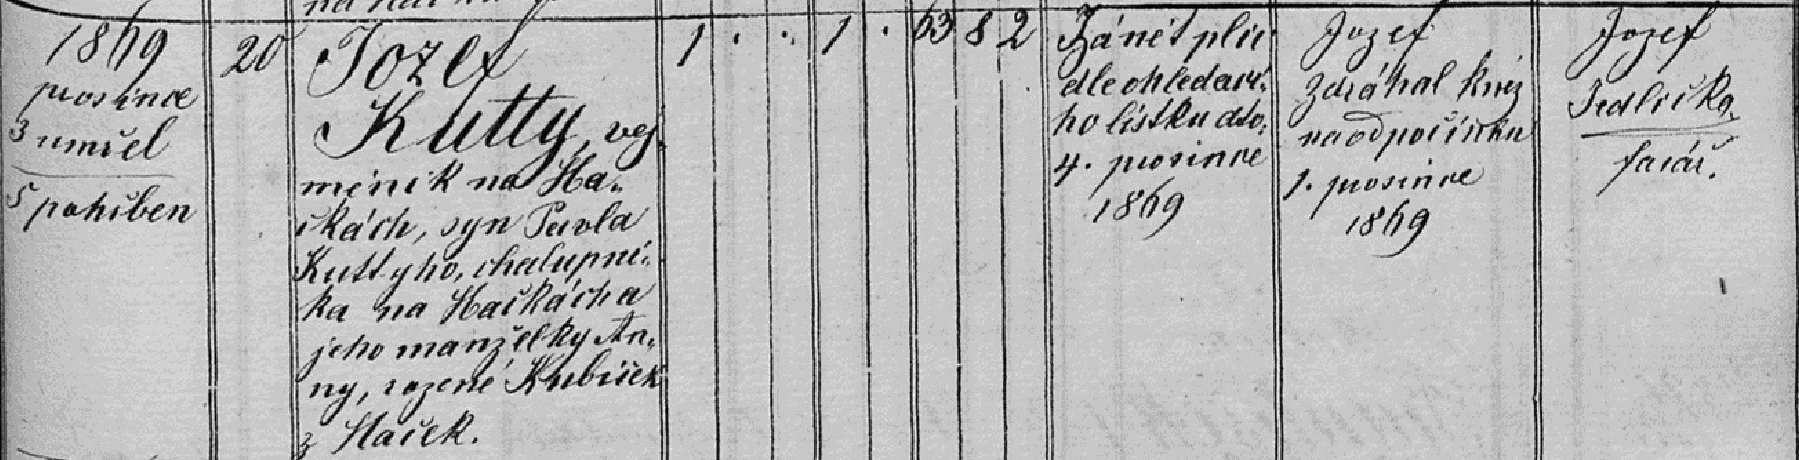 1869
prosince
3 umřel
5 pohřben
20
Jozef
Kutty, vej-
měník na Ha-
čkách, syn Pavla
Kuttyho, chalupní-
ka na Hačkách a
jeho manželky An-
ny, rozené Kubíček
z Haček.
1 . . 1 . 63 8 2
Zánět plic
dle ohledací-
ho lístku dto.
4. prosince
1869
Jozef
Zdráhal kněz
na odpočinku
1. prosince
1869
Jozef
Jedlička
farář.